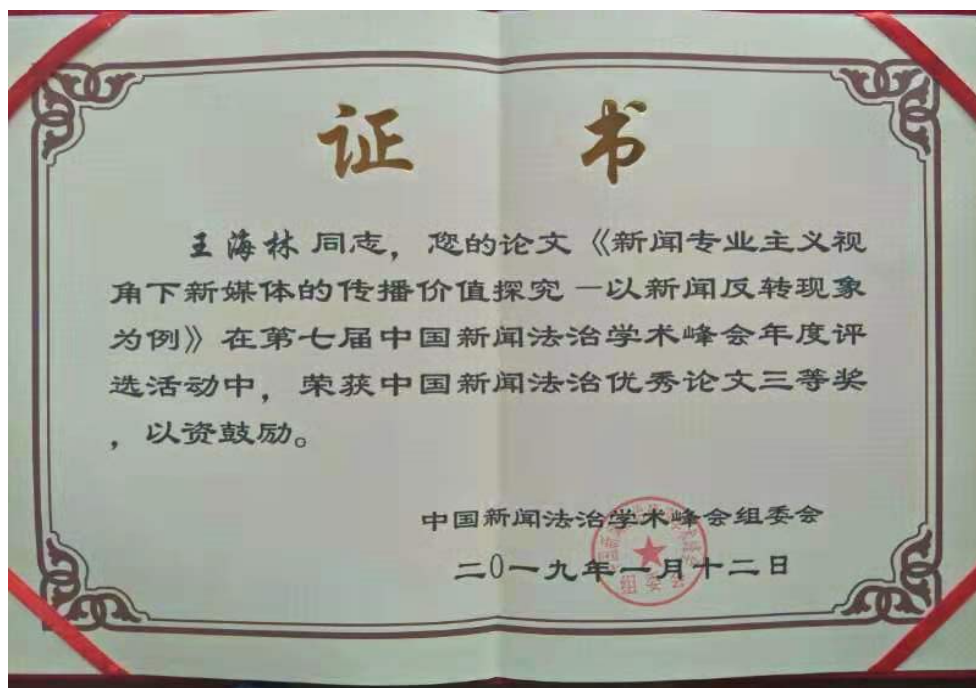 证 书
王海林同志，您的论文《新闻专业主义视
角下新媒体的传播价值探究—以新闻反转现象
为例》在第七届中国新闻法治学术峰会年度评
选活动中，荣获中国新闻法治优秀论文三等奖
，以资鼓励。
中国新闻法治学术峰会组委会
二0一九年一月十二日
组委会